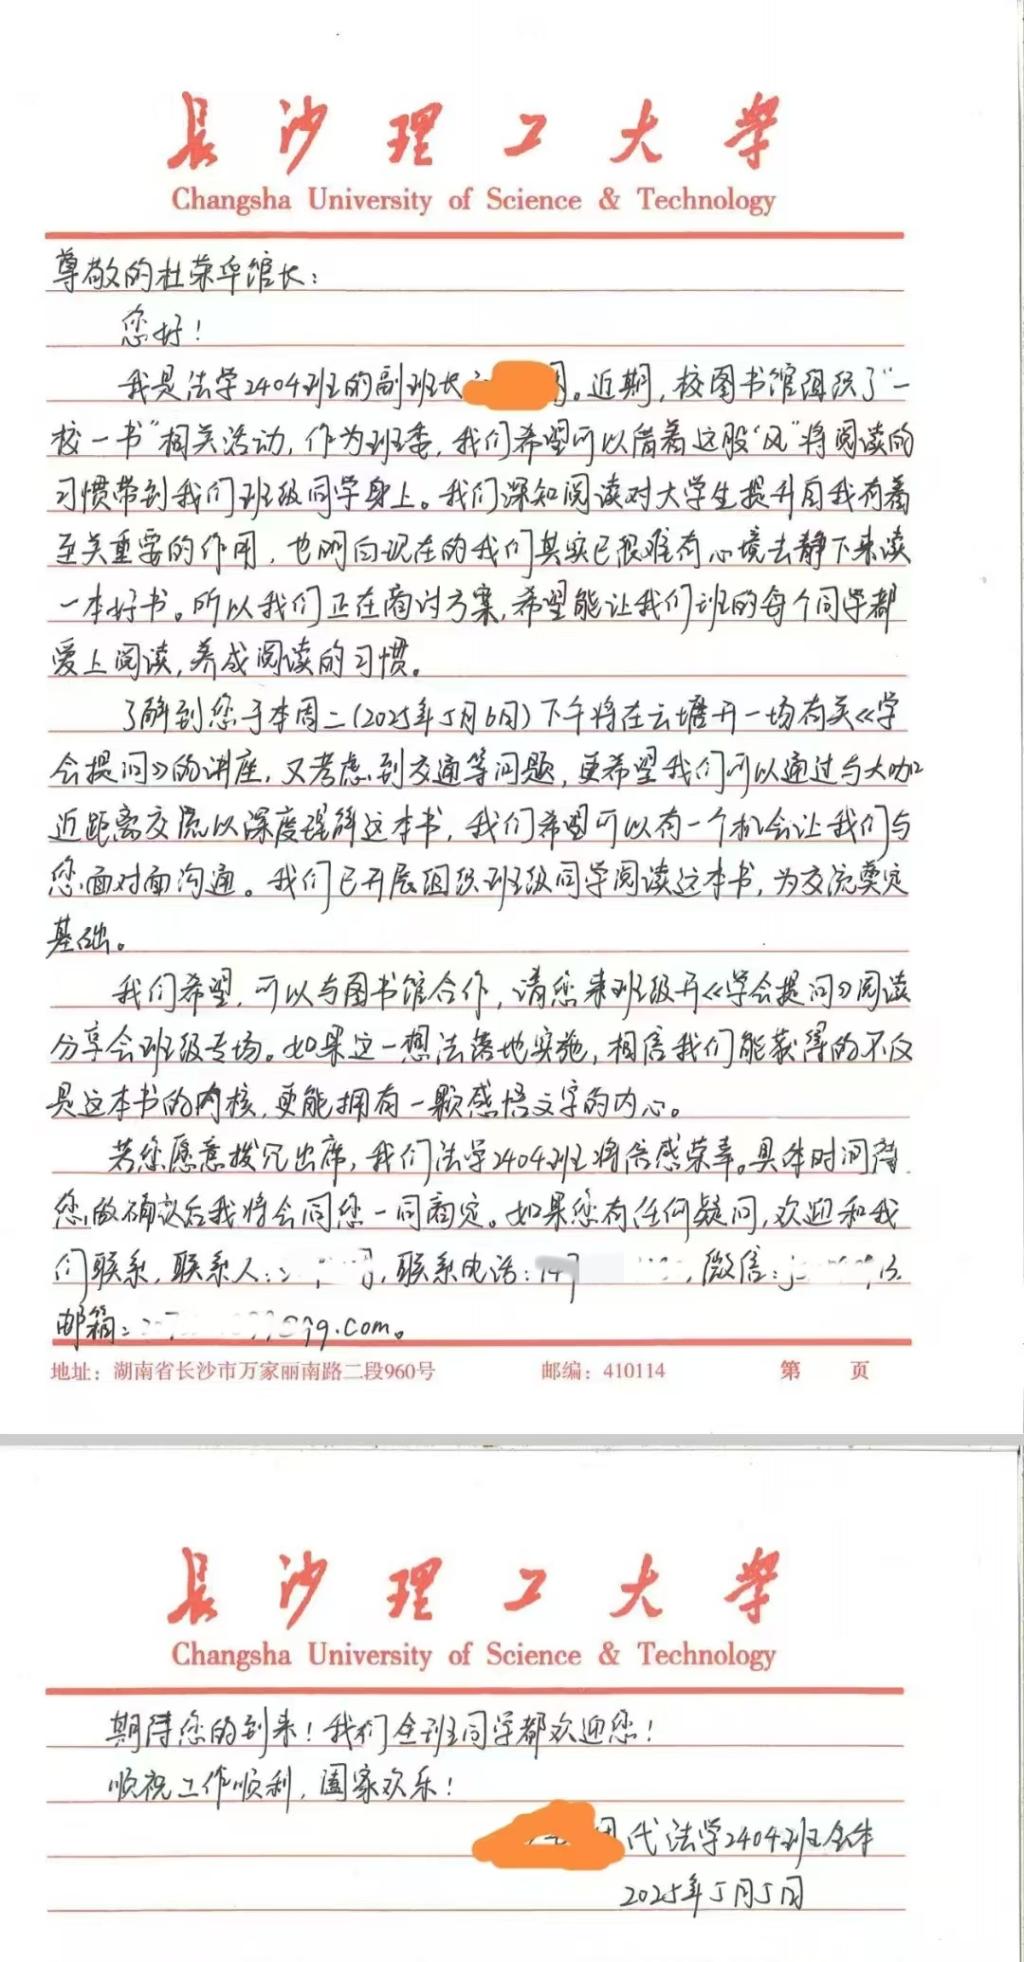 长沙理工大学
Changsha University of Science & Technology
尊敬的杜荣华馆长：
您好！
我是法学2404班的副班长。近期，校图书馆组织了“一
校一书”相关活动，作为班委，我们希望可以借着这股“风”将阅读的
习惯带到我们班级同学身上。我们深知阅读对大学生提升自我有着
至关重要的作用，也明白现在的我们其实已很难有心境去静下来读
一本好书。所以我们正在商讨方案，希望能让我们班的每个同学都
爱上阅读，养成阅读的习惯。
了解到您于本周二（2025年5月6日）下午将在云塘开一场有关《学
会提问》的讲座，又考虑到交通等问题，更希望我们可以通过与大咖
近距离交流以深度理解这本书，我们希望可以有一个机会让我们与
您面对面沟通。我们已开展组织班级同学阅读这本书，为交流奠定
基础。
我们希望，可以与图书馆合作，请您来班级开《学会提问》阅读
分享会班级专场。如果这一想法落地实施，相信我们能获得的不仅
是这本书的内核，更能拥有一颗感悟文字的内心。
若您愿意拨冗出席，我们法学2404班将倍感荣幸。具体时间待
您做确认后我将会同您一同商定。如果您有任何疑问，欢迎和我
们联系，联系人：，联系电话：147，微信：
邮箱：qq.com。
地址：湖南省长沙市万家丽南路二段960号 邮编：410114 第 页
长沙理工大学
Changsha University of Science & Technology
期待您的到来！我们全班同学都欢迎您！
顺祝工作顺利，阖家欢乐！
代法学2404班全体
2025年5月5日